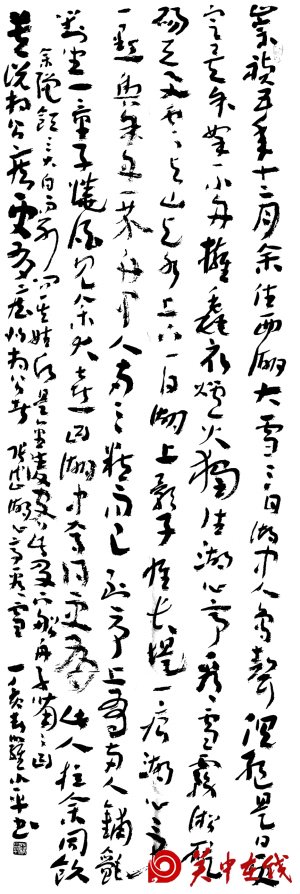 崇祯五年十二月余住西湖大雪三日湖中人鸟声俱绝是日更
定矣余拏一小舟拥毳衣炉火独往湖心亭看雪雾凇沆
砀天与云与山与水上下一白湖上影子惟长堤一痕湖心亭
一点与余舟一芥舟中人两三粒而已到亭上有两人铺毡
对坐一童子烧酒见余大喜曰湖中焉得更有此人拉余同饮
余强饮三大白而别问其姓氏是金陵人客此及下船舟子喃喃曰
莫说相公痴更有痴似相公者 张岱湖心亭看雪 罗小平书
吴中在线